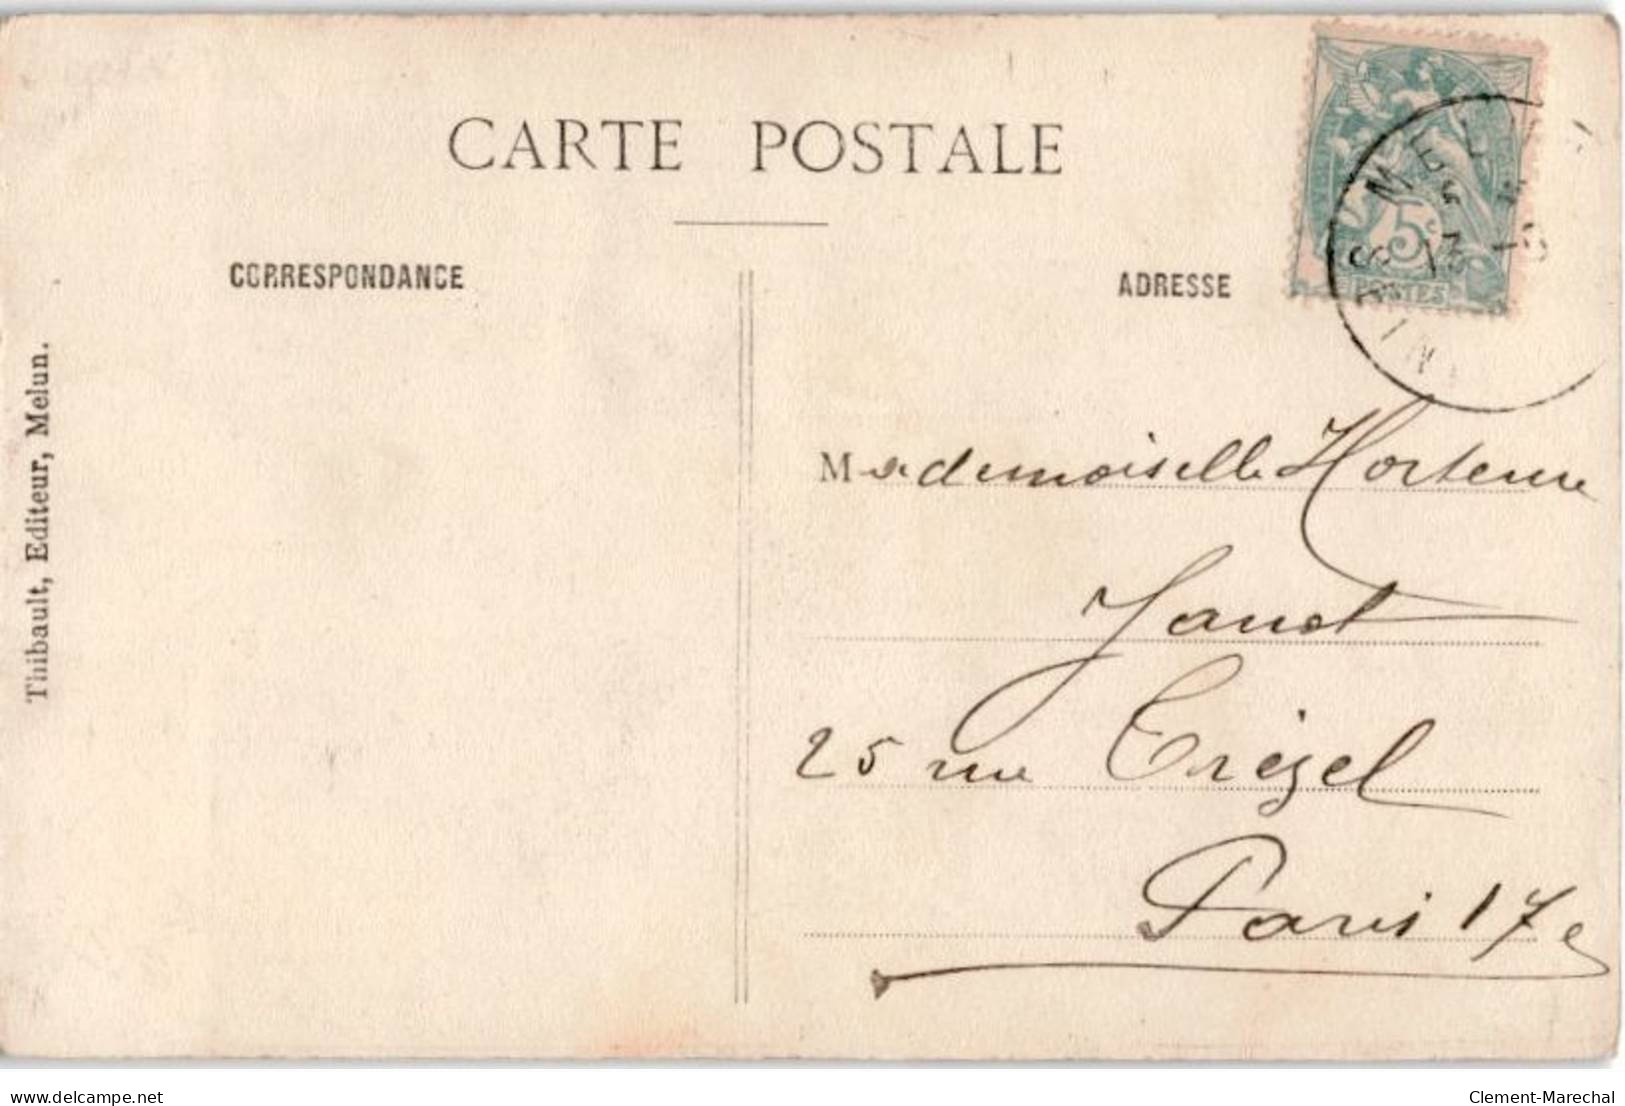 CARTE POSTALE
CORRESPONDANCE
ADRESSE
5c
POSTES
MELUN
Thibault, Editeur, Melun.
Mademoiselle Hortense
Janot
25 rue Trézel
Paris 17e
delcampe.net
Clement-Marechal